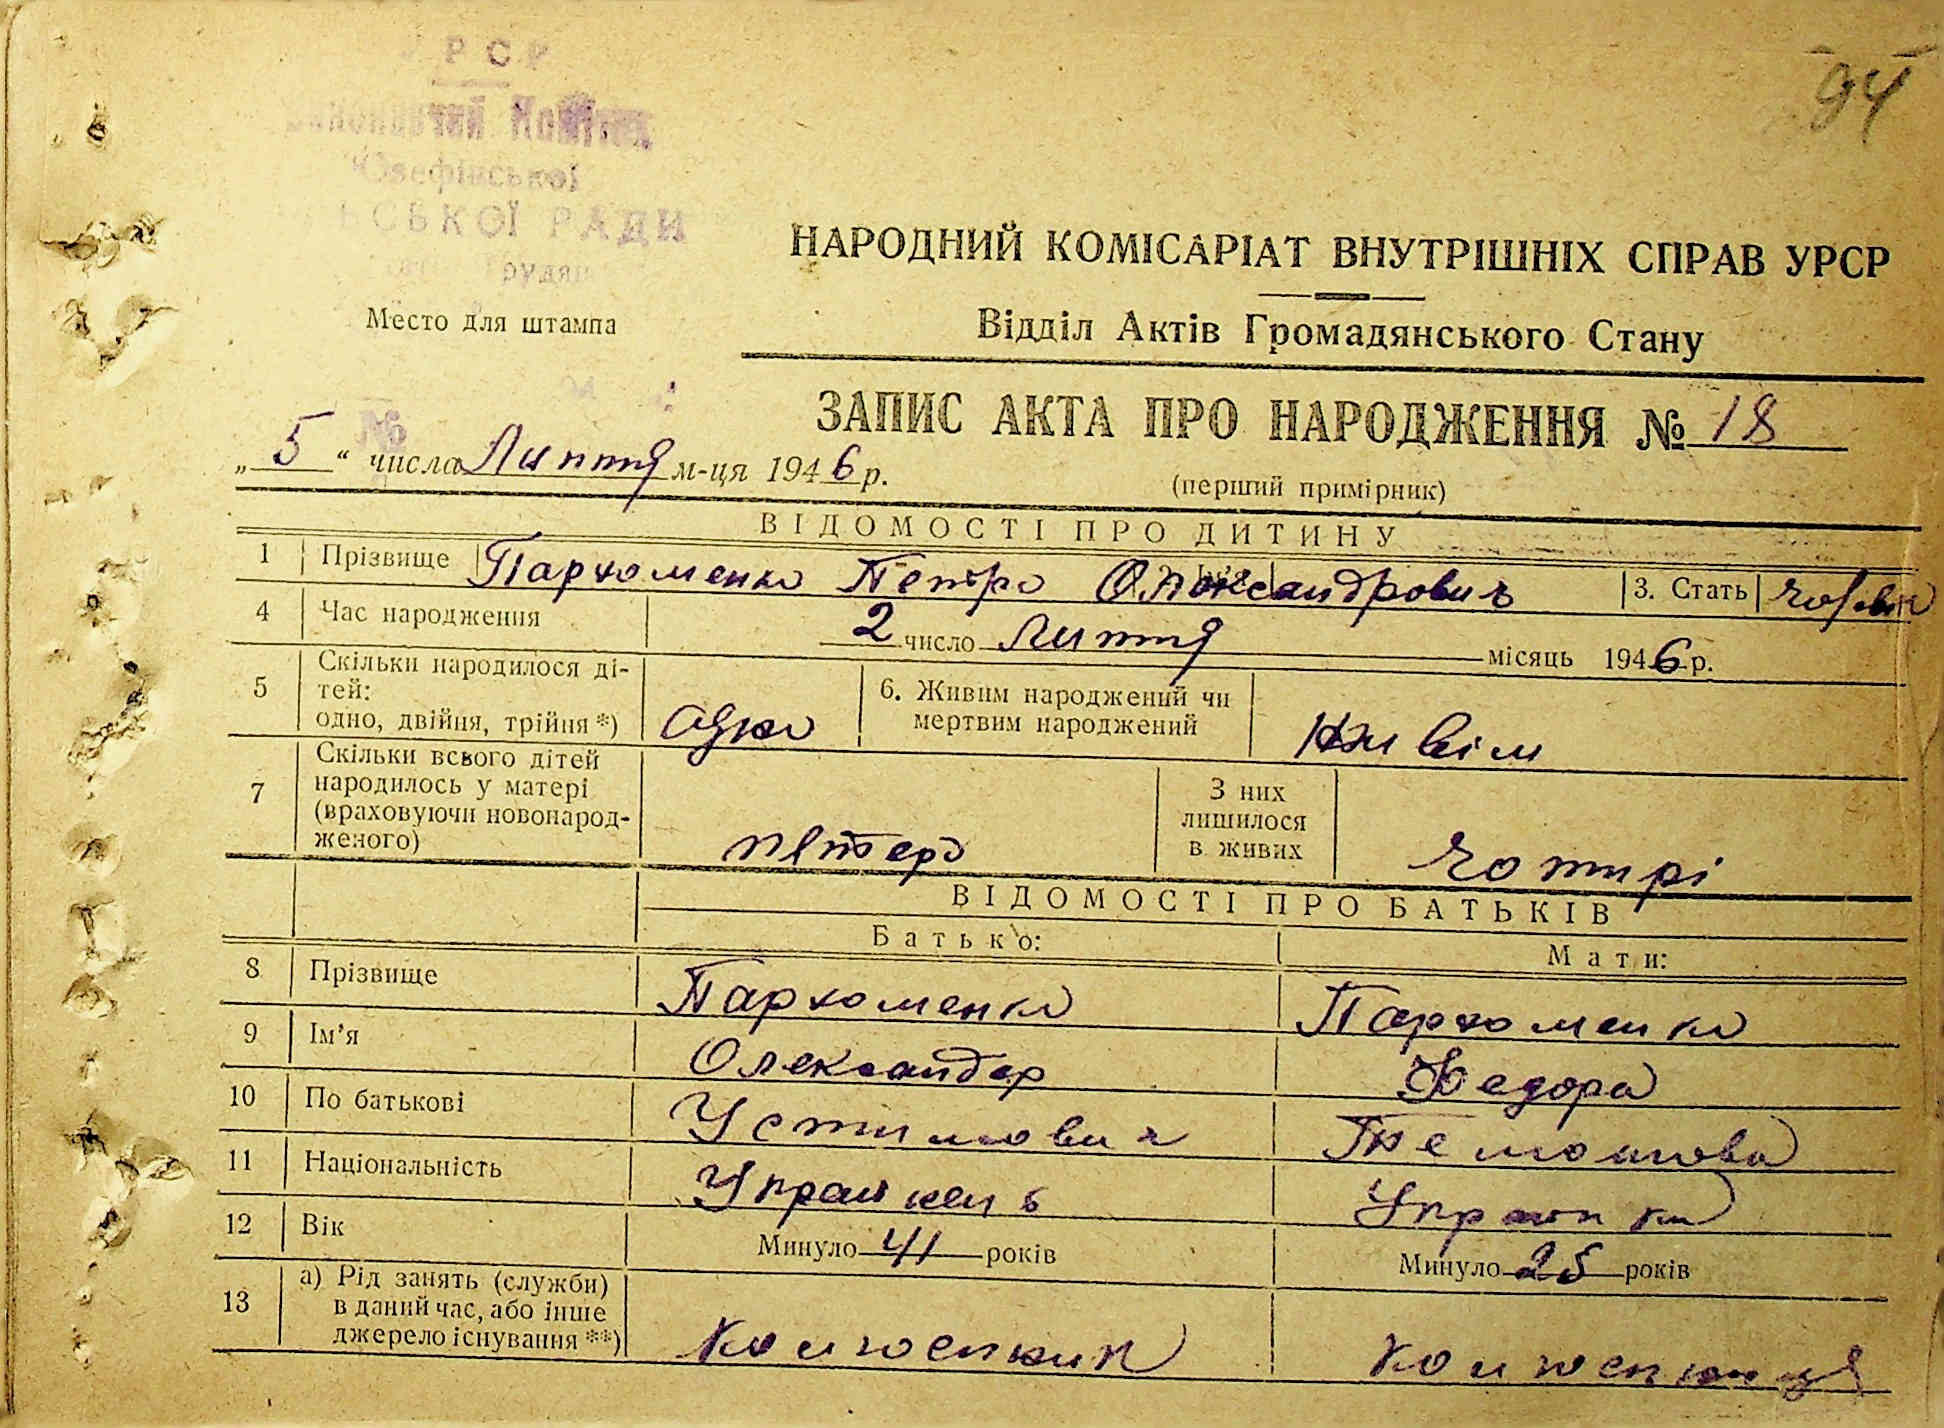 94
РСР
Виконавчий Комітет
Юзефівської
СЬКОЇ РАДИ
Место для штампа
НАРОДНИЙ КОМІСАРІАТ ВНУТРІШНІХ СПРАВ УРСР
Відділ Актів Громадянського Стану
ЗАПИС АКТА ПРО НАРОДЖЕННЯ № 18
№
„ 5 “ числа Липття м-ця 1946 р.
(перший примірник)
ВІДОМОСТІ ПРО ДИТИНУ
1 Прізвище Пархоменко Петро Олександрович 3. Стать
4 Час народження 2 число Липття місяць 1946 р.
5 Скільки народилося ді-
тей:
одно, двійня, трійня *) одно 6. Живим народжений чи
мертвим народжений живім
7 Скільки всього дітей
народилось у матері
(враховуючи новонарод-
женого) пятеро З них
лишилося
в живих чотирі
ВІДОМОСТІ ПРО БАТЬКІВ
Батько: Мати:
8 Прізвище Пархоменко Пархоменко
9 Ім’я Олександр Федора
10 По батькові Устимович
11 Національність Українець Українка
12 Вік Минуло 41 років Минуло 25 років
13 а) Рід занять (служби)
в даний час, або інше
джерело існування **) колгоспник колгоспниця